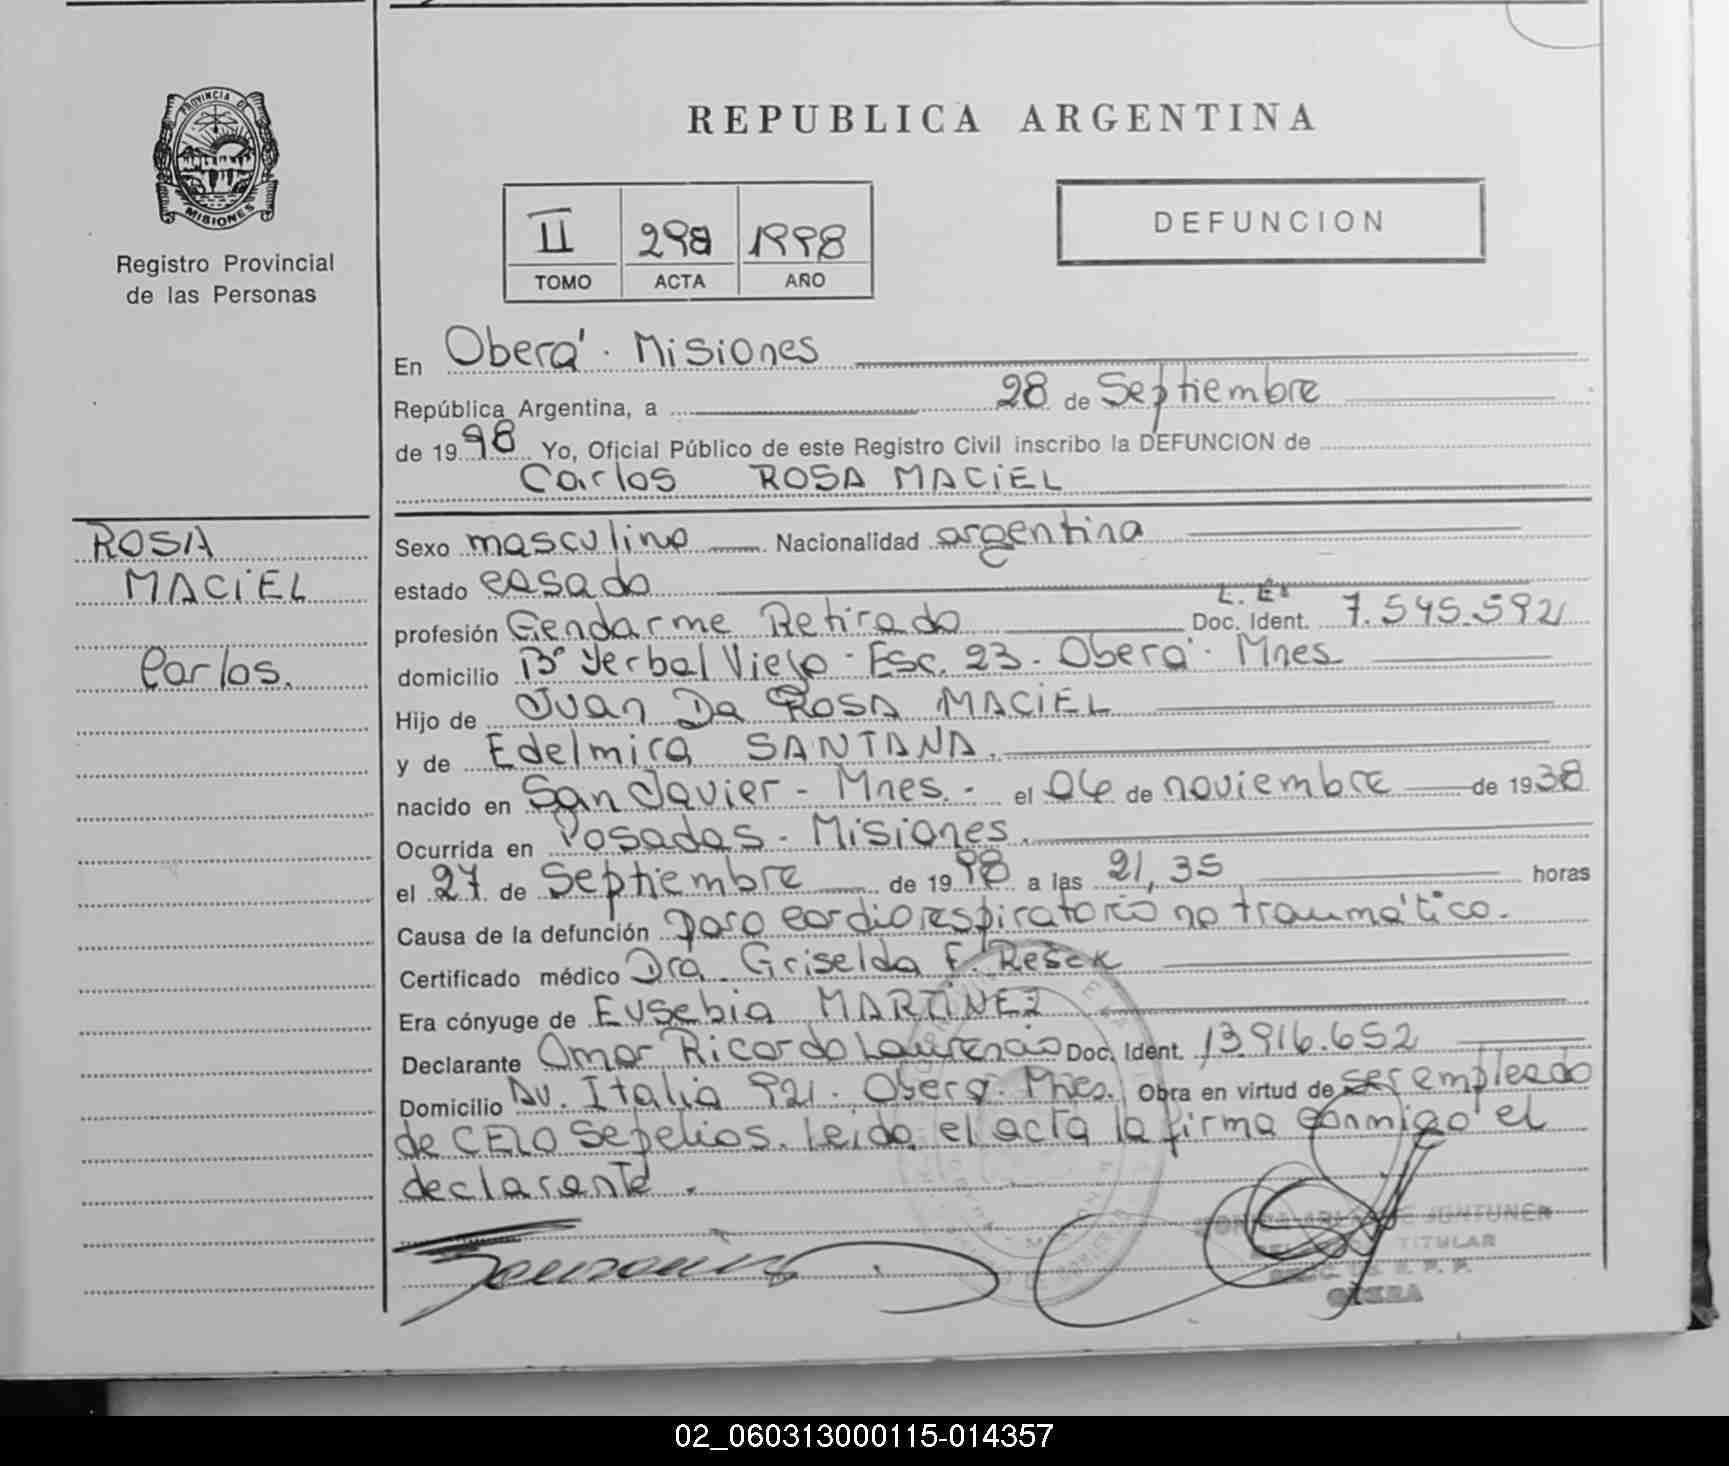 PROVINCIA DE
MISIONES
Registro Provincial
de las Personas
REPUBLICA ARGENTINA
II 298 1998
TOMO ACTA AÑO
DEFUNCION
En Oberá - Misiones
República Argentina, a 28 de Septiembre
de 1998 Yo, Oficial Público de este Registro Civil inscribo la DEFUNCION de
Carlos ROSA MACIEL
ROSA
MACIEL
Carlos.
Sexo masculino Nacionalidad argentina
estado casado
L.E.
profesión Gendarme Retirado Doc. Ident. 7.545.592
domicilio B° Yerbal Viejo - Esc. 23 - Oberá - Mnes
Hijo de Juan Da ROSA MACIEL
y de Edelmira SANTANA.
nacido en San Javier - Mnes. - el 06 de noviembre de 1938
Ocurrida en Posadas - Misiones.
el 27 de Septiembre de 1998 a las 21,35 horas
Causa de la defunción paro cardiorespiratorio no traumático.
Certificado médico Dra. Griselda F. Resek
Era cónyuge de Eusebia MARTINEZ
Declarante Omar Ricardo Doc. Ident. 13.916.652
Domicilio Av. Italia 921 - Oberá - Mnes. Obra en virtud de ser empleado
de CELO Sepelios. Leida el acta la firma conmigo el
declarante.
TITULAR
OBERA
02_060313000115-014357